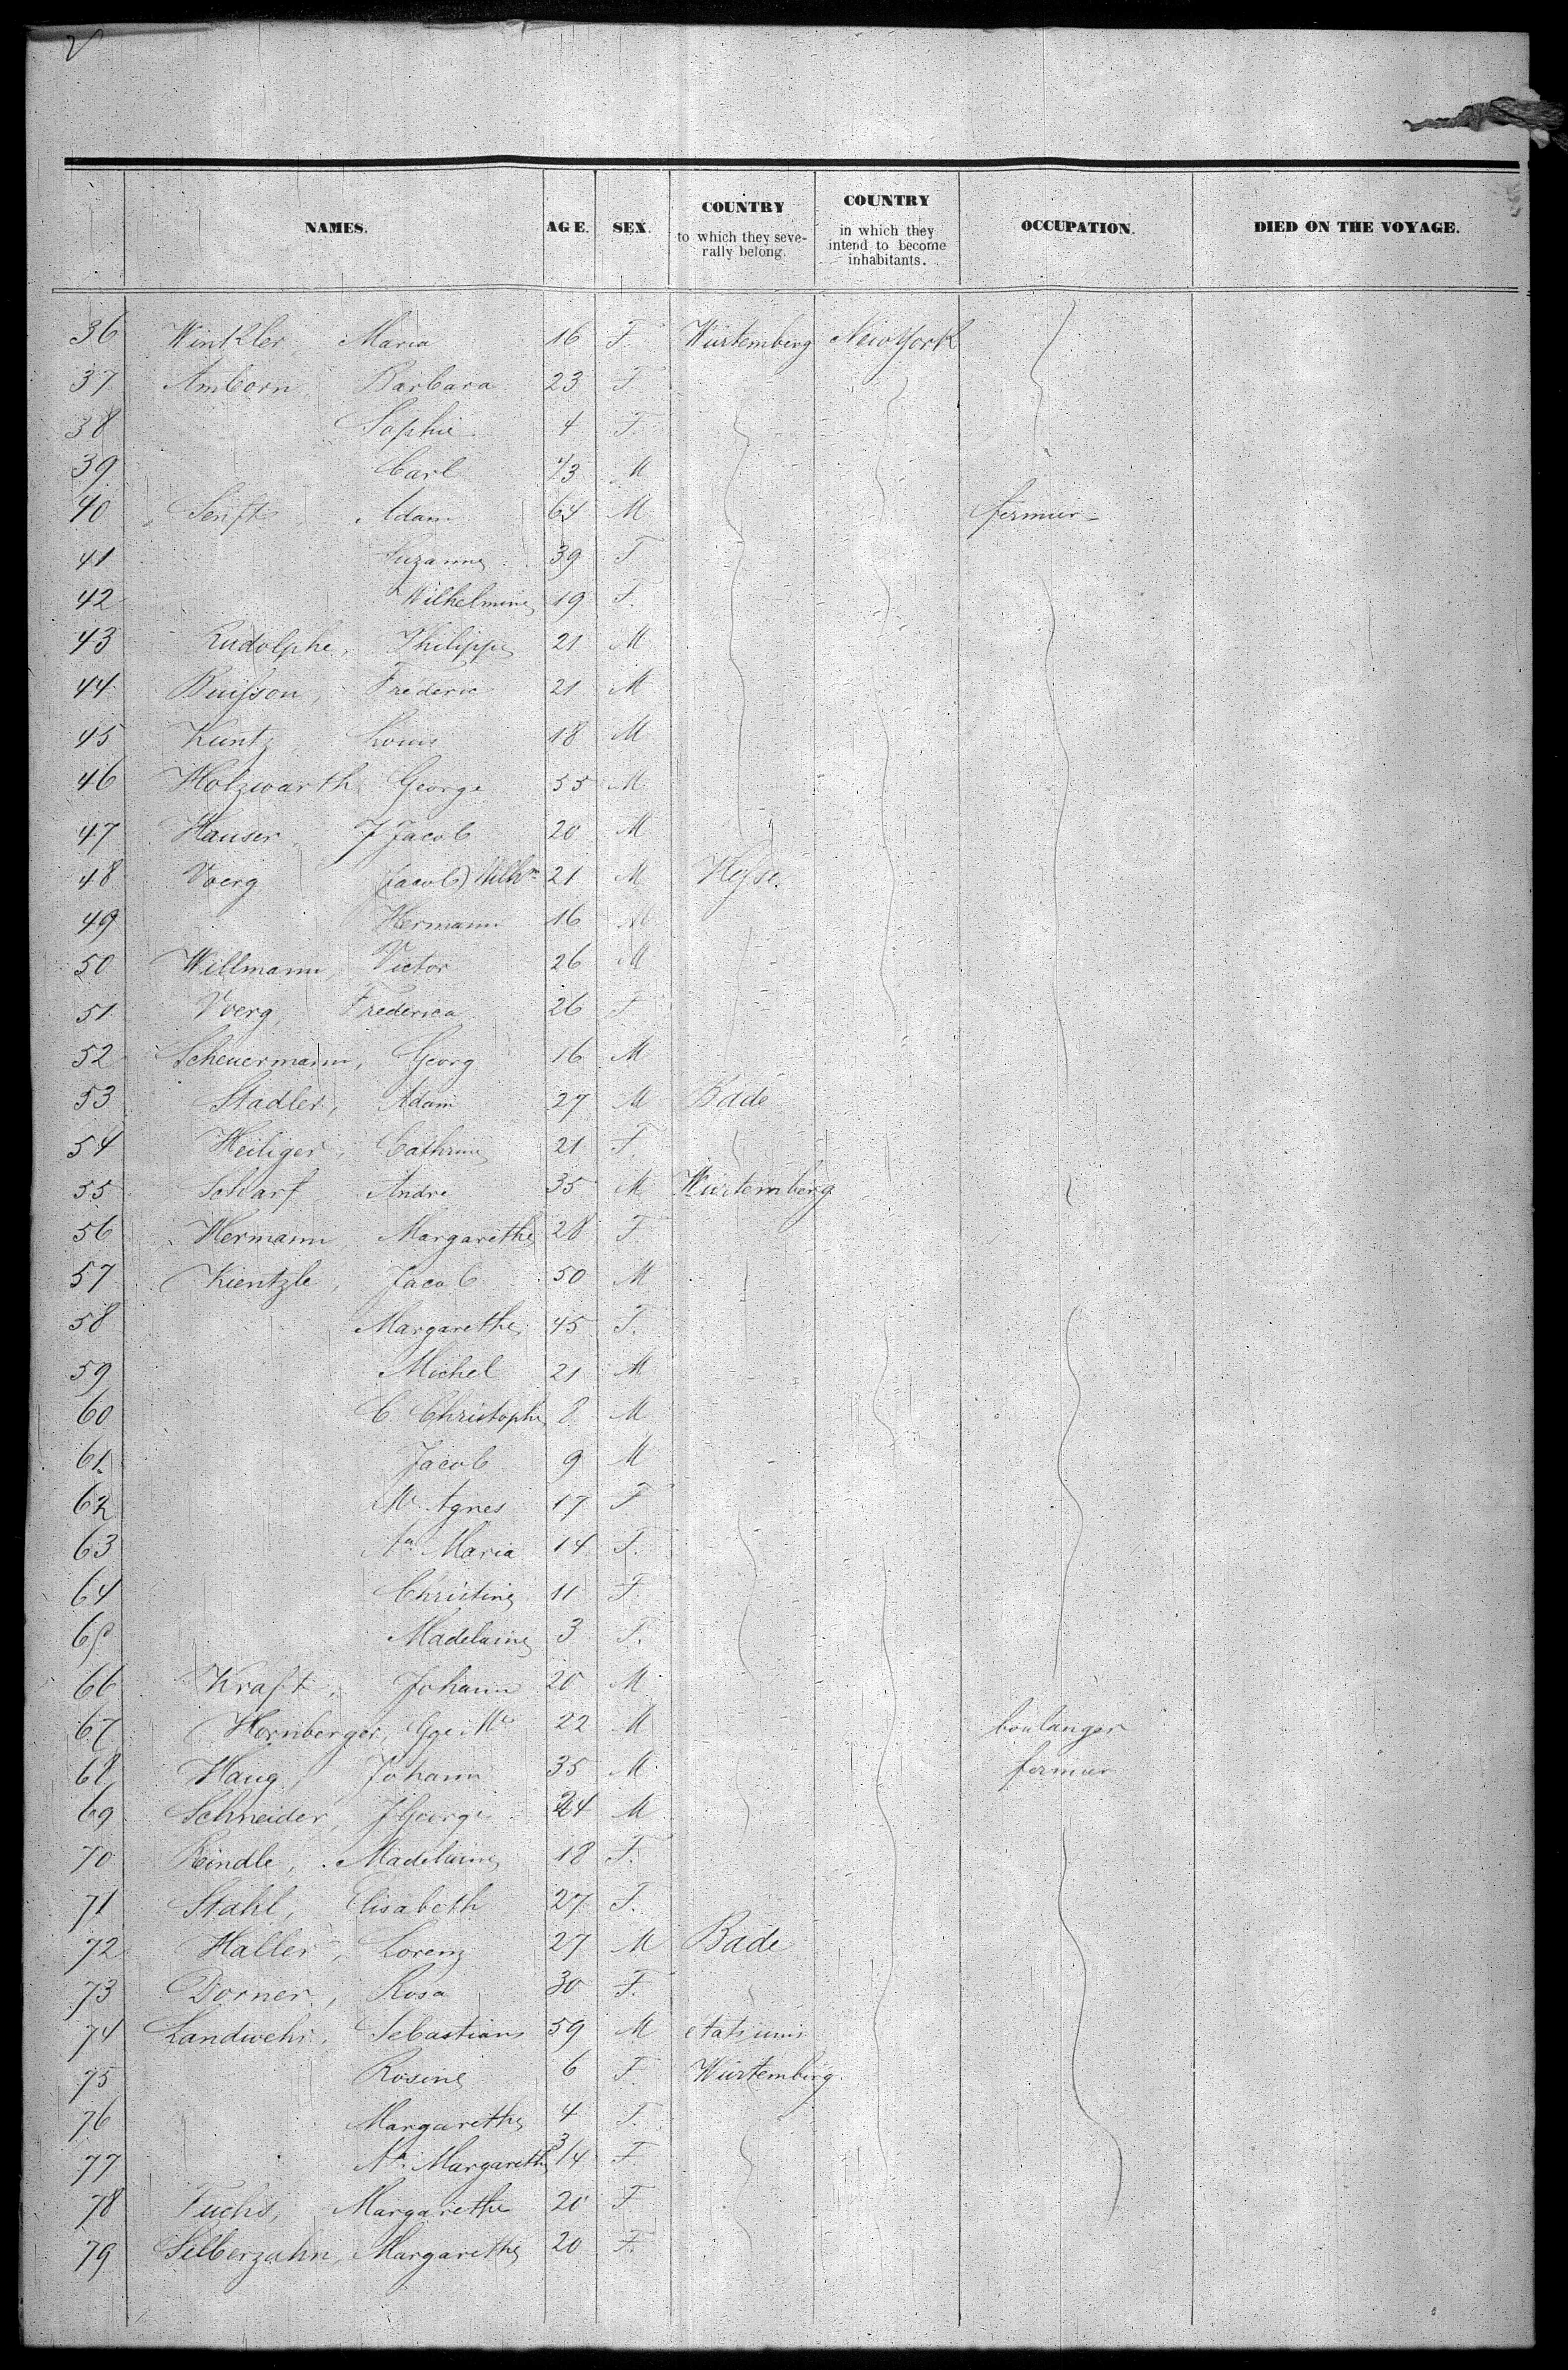 2
NAMES. AGE. SEX. COUNTRY to which they severally belong. COUNTRY in which they intend to become inhabitants. OCCUPATION. DIED ON THE VOYAGE.
36 Winkler, Maria 16 F. Würtemberg New York
37 Amborn, Barbara 23 F.
38 Sophie 4 F.
39 Carl 1/3 M
40 Senft, Adam 64 M fermier
41 Suzanne 39 F
42 Wilhelmine 19 F.
43 Rudolphe, Philippe 21 M
44 Buisson, Fréderic 21 M
45 Kuntz, Louis 18 M
46 Holzwarth George 55 M
47 Hauser, J Jacob 20 M
48 Voerg (Jacob) Wilhm 21 M Hesse.
49 Hermann 16 M
50 Willmann, Victor 26 M
51 Voerg, Frederica 26 F
52 Scheuermann, Georg 16 M
53 Stadler, Adam 27 M Bade
54 Heiliger, Cathrine 21 F.
55 Scharf, Andre 35 M Würtemberg
56 Hermann, Margarethe 28 F
57 Kientzle, Jacob 50 M
58 Margarethe 45 F.
59 Michel 21 M
60 C. Christophe 8 M
61 Jacob 9 M
62 Me Agnes 17 F
63 Aa Maria 14 F.
64 Christine 11 F
65 Madelaine 3 F.
66 Kraft, Johann 20 M
67 Hornberger, Gge Me 22 M boulanger
68 Haug, Johann 35 M fermier
69 Schneider, J George 24 M
70 Reindle, Madelaine 18 F.
71 Stahl, Elisabeth 27 F.
72 Haller, Lorenz 27 M Bade
73 Dorner, Rosa 30 F.
74 Landwehr, Sebastians 59 M etats unis
75 Rosine 6 F. Würtemberg
76 Margarethe 4 F.
77 Aa Margarethe 3/4 F
78 Fuchs, Margarethe 20 F
79 Silberzahn, Margarethe 20 F.